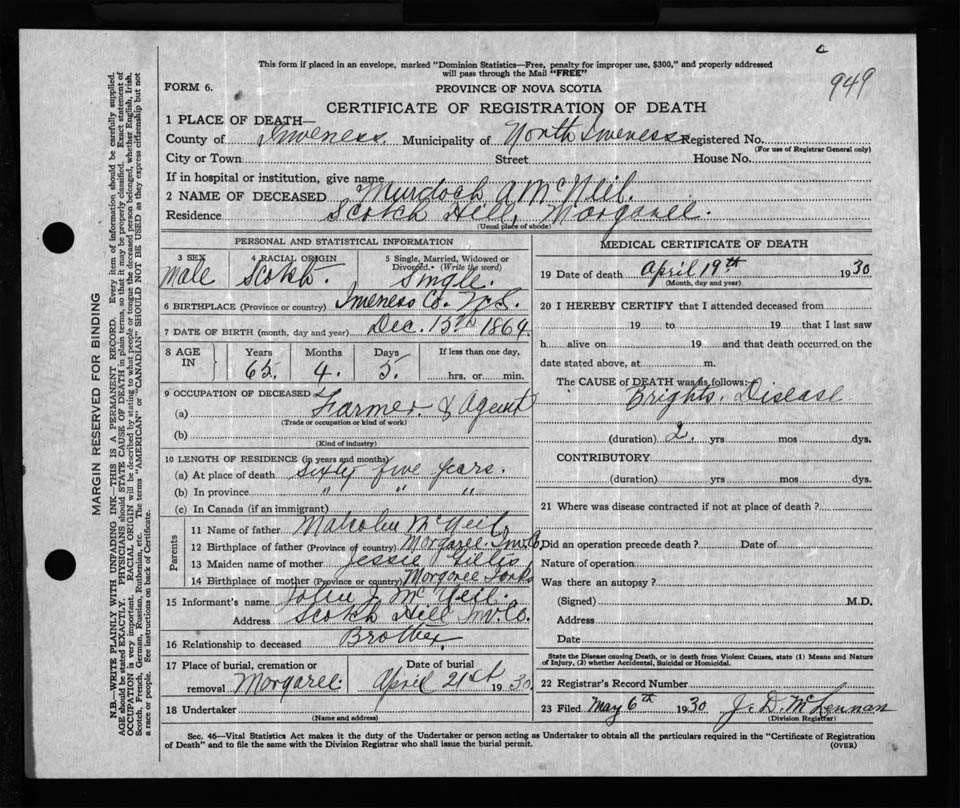 c
949
This form if placed in an envelope, marked "Dominion Statistics—Free, penalty for improper use, $300," and properly addressed
will pass through the Mail "FREE"
FORM 6.
PROVINCE OF NOVA SCOTIA
CERTIFICATE OF REGISTRATION OF DEATH
1 PLACE OF DEATH—
County of Inverness. Municipality of North Inverness Registered No.
(For use of Registrar General only)
City or Town Street House No.
If in hospital or institution, give name
2 NAME OF DECEASED Murdoch A McNeil.
Residence Scotch Hill, Margaree.
(Usual place of abode)
PERSONAL AND STATISTICAL INFORMATION
3 SEX Male
4 RACIAL ORIGIN Scotch.
5 Single, Married, Widowed or Divorced. (Write the word) Single.
6 BIRTHPLACE (Province or country) Inverness Co. N.S.
7 DATE OF BIRTH (month, day and year) Dec. 15th 1864
8 AGE IN Years Months Days If less than one day,
65. 4. 5. hrs. or min.
9 OCCUPATION OF DECEASED
(a) Farmer & Agent
(Trade or occupation or kind of work)
(b)
(Kind of industry)
10 LENGTH OF RESIDENCE (in years and months)
(a) At place of death Sixty five years.
(b) In province " " "
(c) In Canada (if an immigrant)
Parents
11 Name of father Malcolm McNeil,
12 Birthplace of father (Province of country) Margaree. Inv. Co,
13 Maiden name of mother Jessie Gillis
14 Birthplace of mother (Province or country) Margaree Forks
15 Informant's name John J McNeil.
Address Scotch Hill Inv. Co.
16 Relationship to deceased Brother,
17 Place of burial, cremation or removal Margaree.
Date of burial April 21st 1930
18 Undertaker
(Name and address)
MEDICAL CERTIFICATE OF DEATH
19 Date of death April 19th 1930
(Month, day and year)
20 I HEREBY CERTIFY that I attended deceased from
19 to 19 that I last saw
h alive on 19 and that death occurred, on the
date stated above, at m.
The CAUSE of DEATH was as follows:
Brights. Disease
(duration) 2. yrs mos dys.
CONTRIBUTORY
(duration) yrs mos dys.
21 Where was disease contracted if not at place of death?
Did an operation precede death? Date of
Nature of operation
Was there an autopsy?
(Signed) M.D.
Address
Date
State the Disease causing Death, or in death from Violent Causes, state (1) Means and Nature
of Injury, (2) whether Accidental, Suicidal or Homicidal.
22 Registrar's Record Number
23 Filed May 6th 1930 J. D. McLennan
(Division Registrar)
Sec. 46—Vital Statistics Act makes it the duty of the Undertaker or person acting as Undertaker to obtain all the particulars required in the "Certificate of Registration
of Death" and to file the same with the Division Registrar who shall issue the burial permit.
(OVER)
MARGIN RESERVED FOR BINDING
N.B.—WRITE PLAINLY WITH UNFADING INK—THIS IS A PERMANENT RECORD. Every item of information should be carefully supplied.
AGE should be stated EXACTLY. PHYSICIANS should STATE CAUSE OF DEATH in plain terms, so that it may be properly classified. Exact statement of
OCCUPATION is very important. RACIAL ORIGIN will be described by stating to what people or tongue the deceased person belonged, whether English, Irish,
Scotch, French, German, Russian, Ruthenian, etc. The terms "AMERICAN" or "CANADIAN" SHOULD NOT BE USED as they express citizenship but not
a race or people. See instructions on back of Certificate.